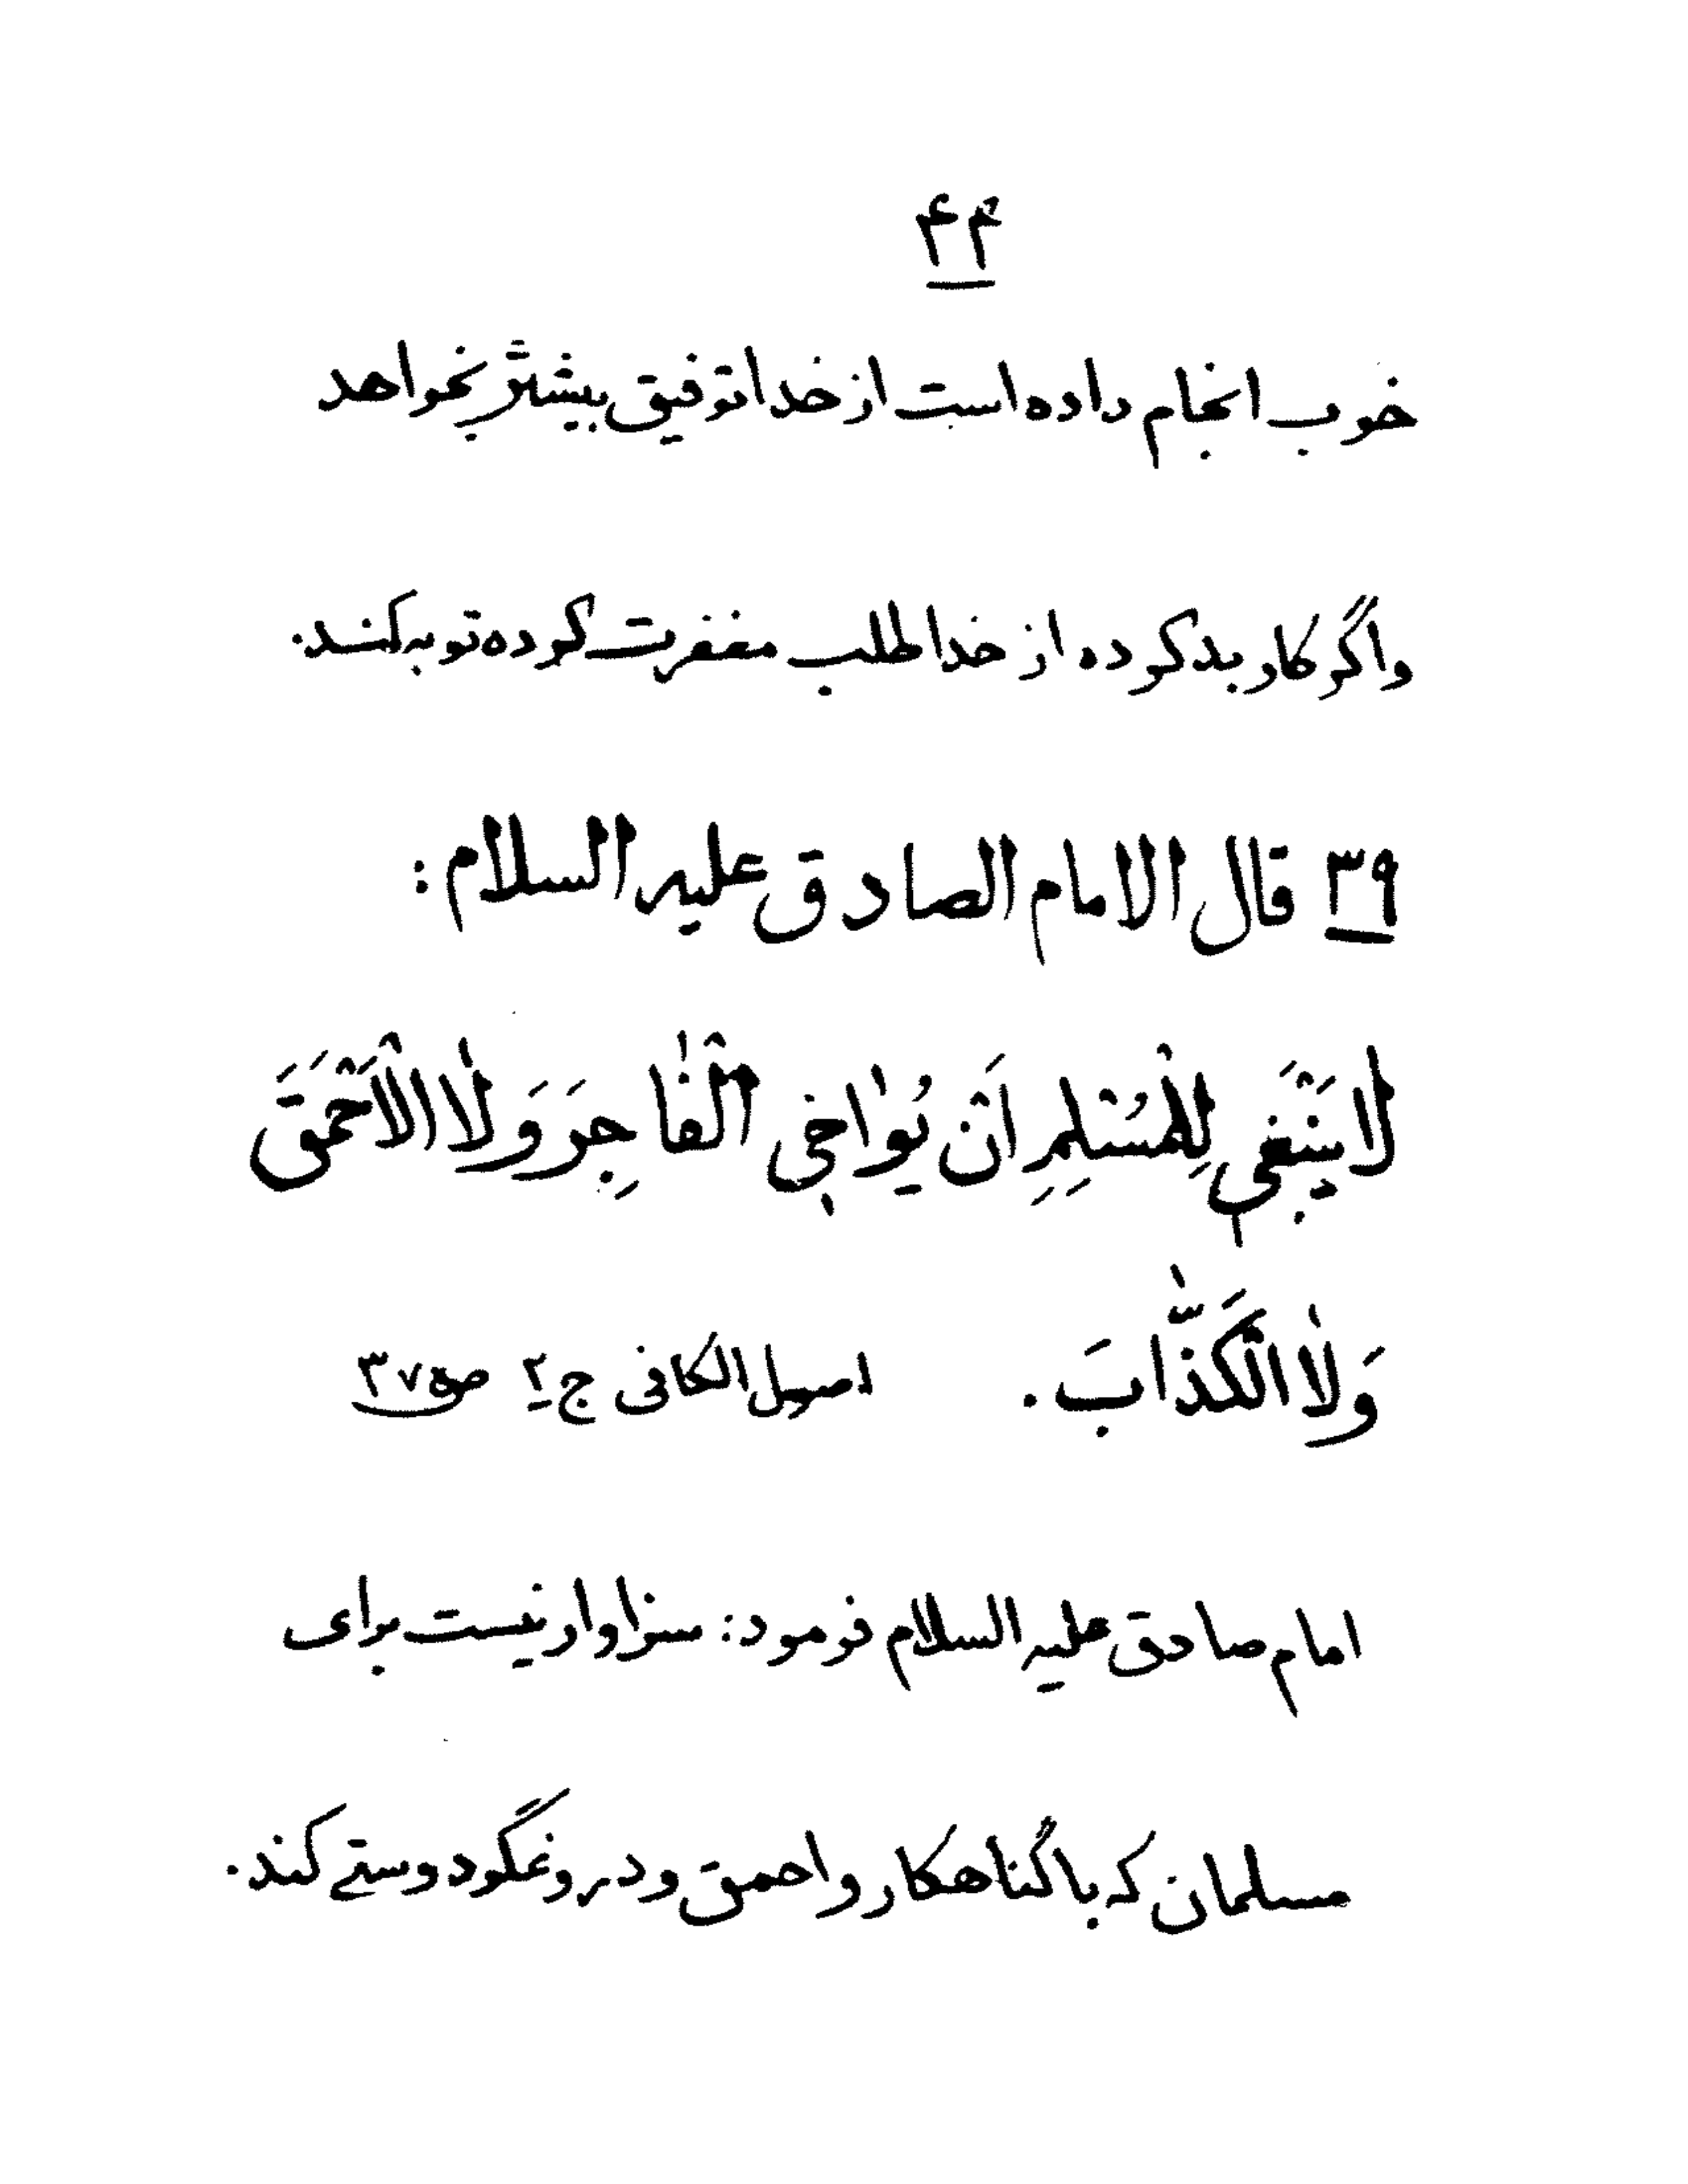 ۴۴
خوب انجام داده است از خدا توفیق بیشتر بخواهد
و اگر کار بد کرده از خدا طلب مغفرت کرده توبه کند.
۳۹ قال الامام الصادق علیه السلام:
لا یَنْبَغی لِلْمُسْلِمِ اَنْ یُوٰاخِیَ الْفٰاجِرَ وَ لٰا الْاَحْمَقَ
وَ لٰا الْکَذّٰابَ. اصول الکافی ج ۲ ص ۳۷۵
امام صادق علیه السلام فرمود: سزاوار نیست برای
مسلمان که با گناهکار و احمق و دروغگو دوستی کند.